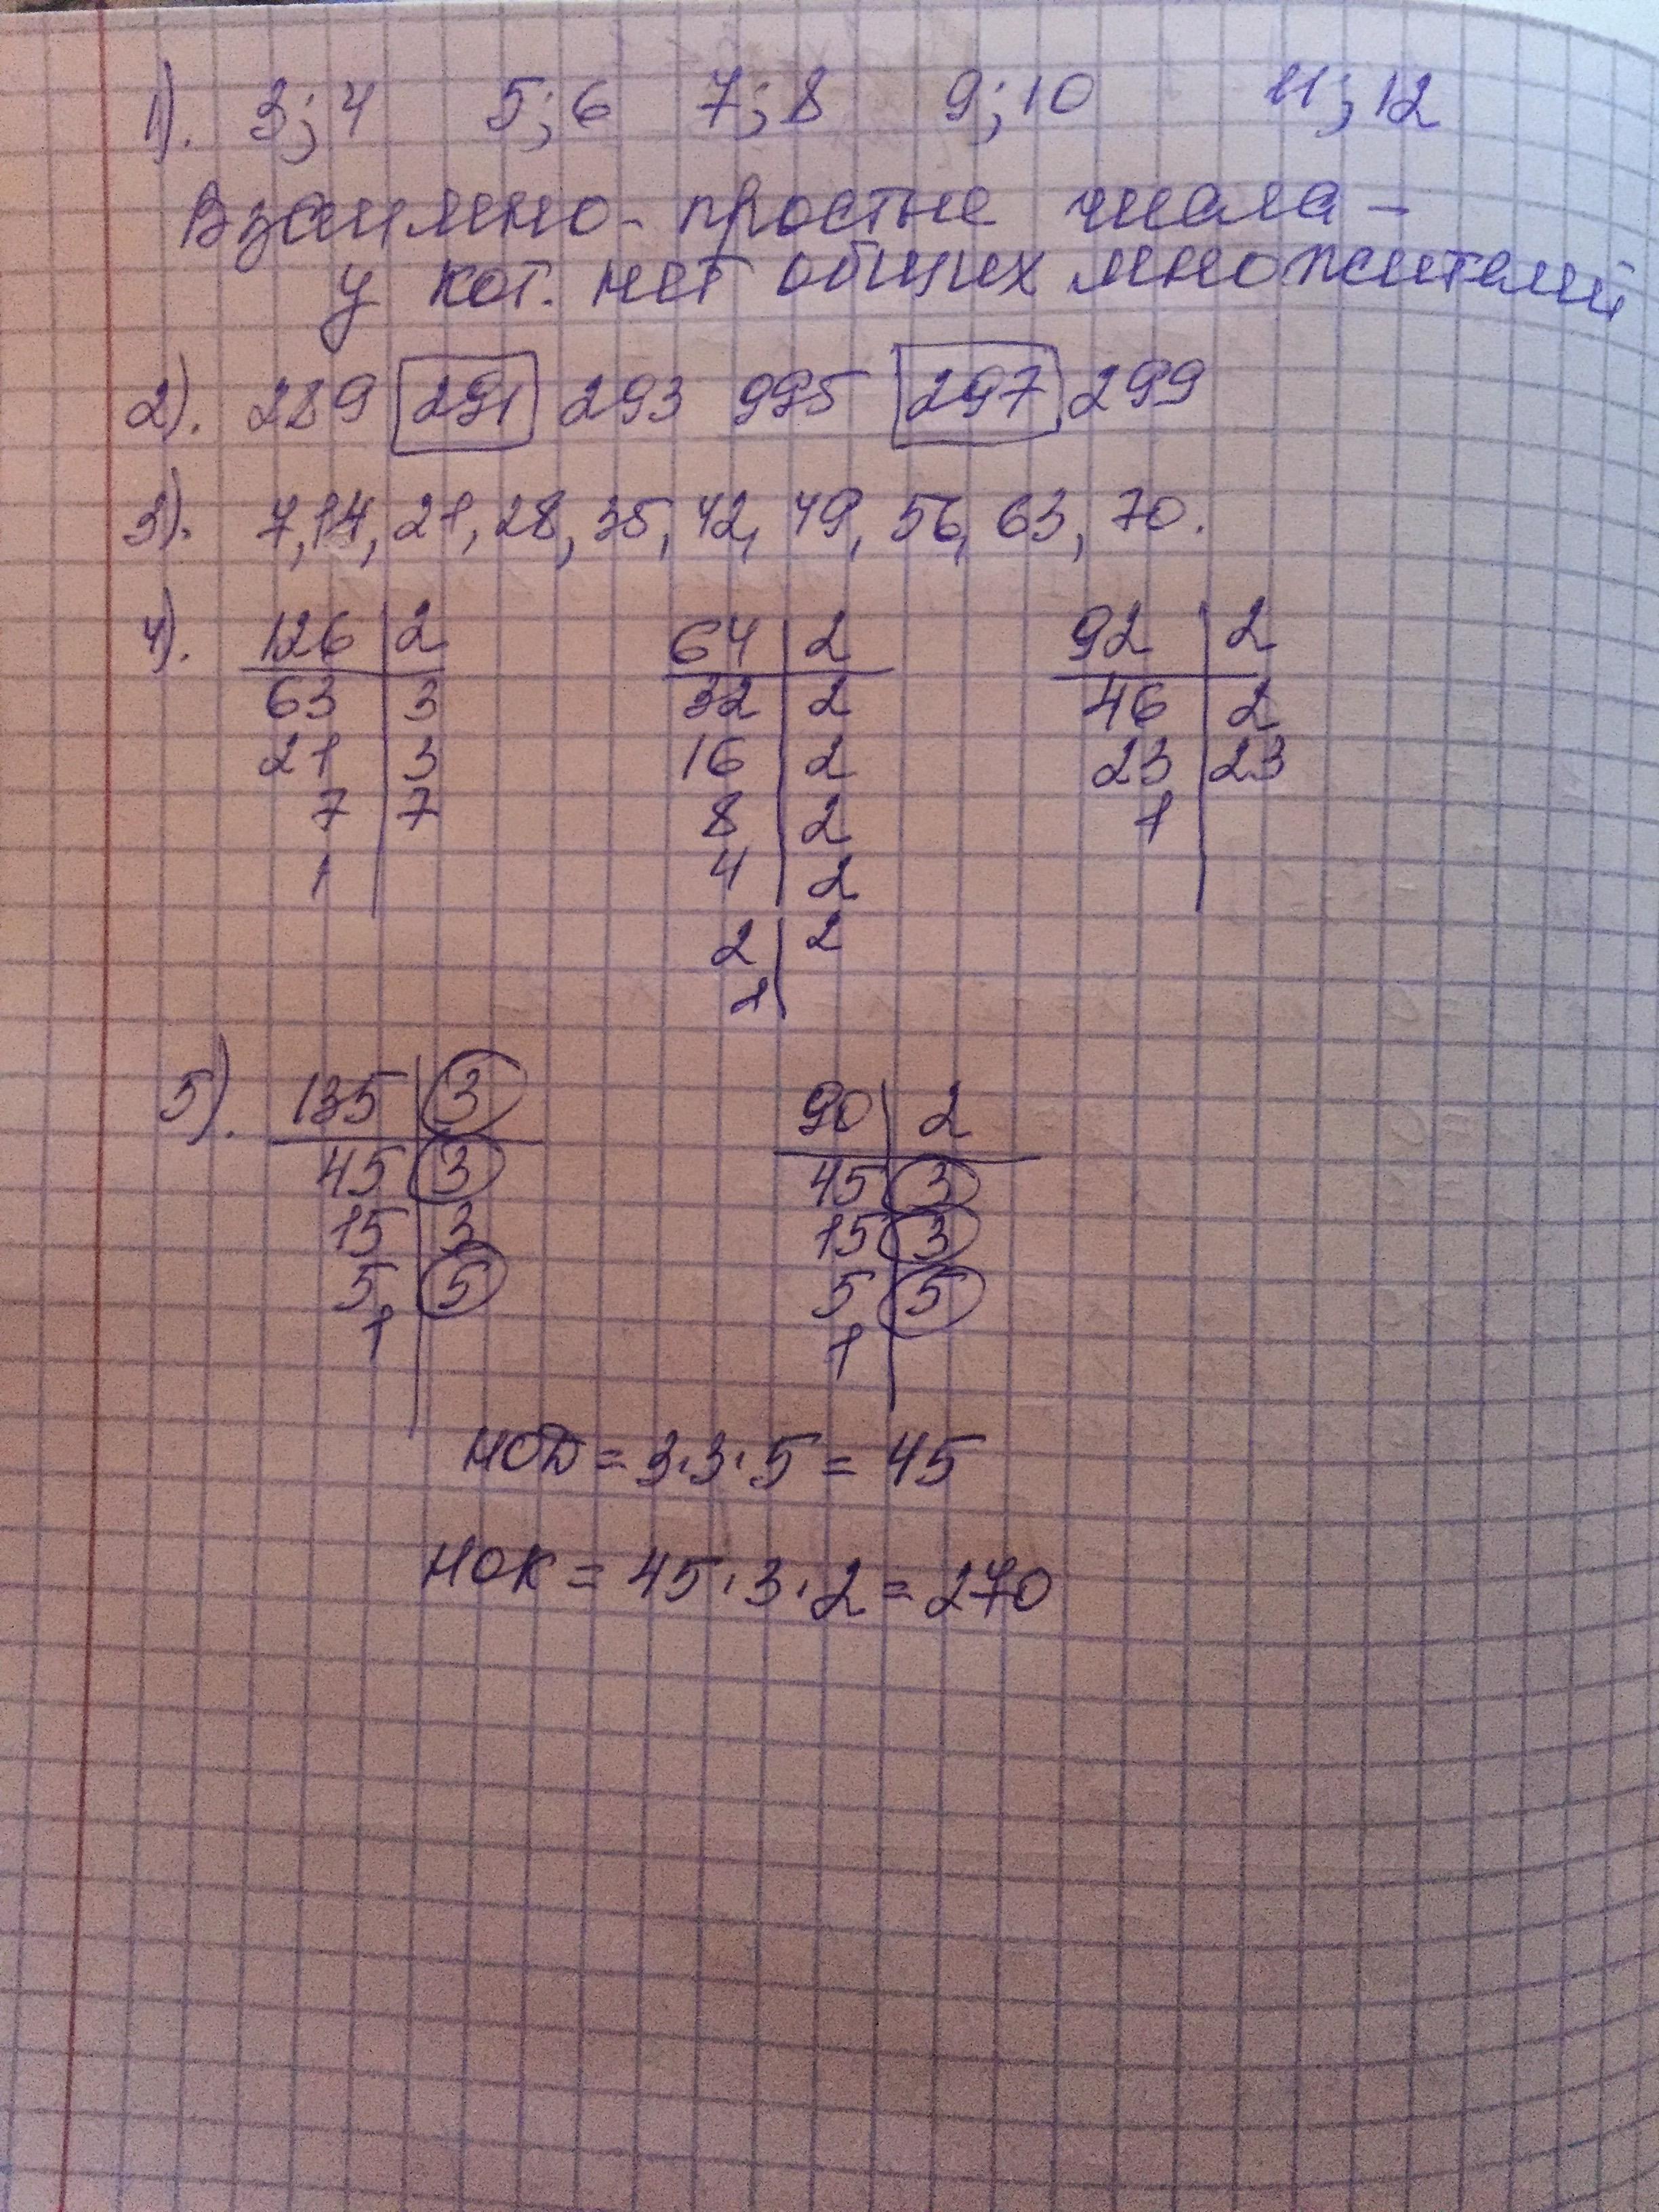 1). 3; 4 5; 6 7; 8 9; 10 11; 12
Взаимно-простые числа -
у кот. нет общих множителей
2). 289 291 293 995 297 299
3). 7, 14, 21, 28, 35, 42, 49, 56, 63, 70.
4). 126 2 64 2 92 2
63 3 32 2 46 2
21 3 16 2 23 23
7 7 8 2 1
1 4 2
2 2
1
5). 135 3 90 2
45 3 45 3
15 3 15 3
5 5 5 5
1 1
НОД = 3·3·5 = 45
НОК = 45·3·2 = 270